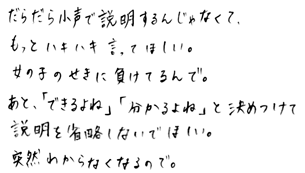 だらだら小声で説明するんじゃなくて、
もっとハキハキ言ってほしい。
女の子のせきに負けてるんで。
あと、「できるよね」「分かるよね」と決めつけて
説明を省略しないでほしい。
突然わからなくなるので。